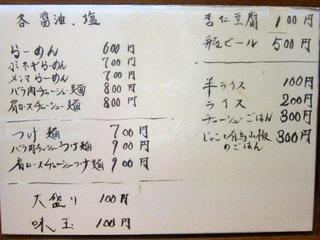 各醤油、塩
らーめん 600円
ネギらーめん 700円
メンマらーめん 700円
バラ肉チャーシュー麺 800円
肩ロースチャーシュー麺 800円
つけ麺 700円
バラ肉チャーシューつけ麺 900円
肩ロースチャーシューつけ麺 900円
大盛り 100円
味玉 100円
杏仁豆腐 100円
瓶ビール 500円
半ライス 100円
ライス 200円
チャーシューごはん 300円
300円
のごはん